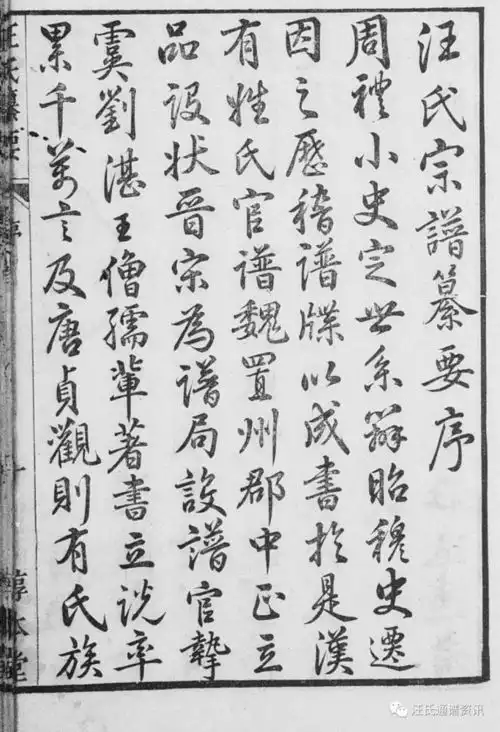 汪氏宗譜纂要序
周禮小史定世系辨昭穆史遷
因之歷稽譜牒以成書於是漢
有姓氏官譜魏置州郡中正立
品設狀晉宋為譜局設譜官摯
虞劉湛王僧孺輩著書立說率
累千萬言及唐貞觀則有氏族
汪氏纂要
序
一
汪氏通谱资讯